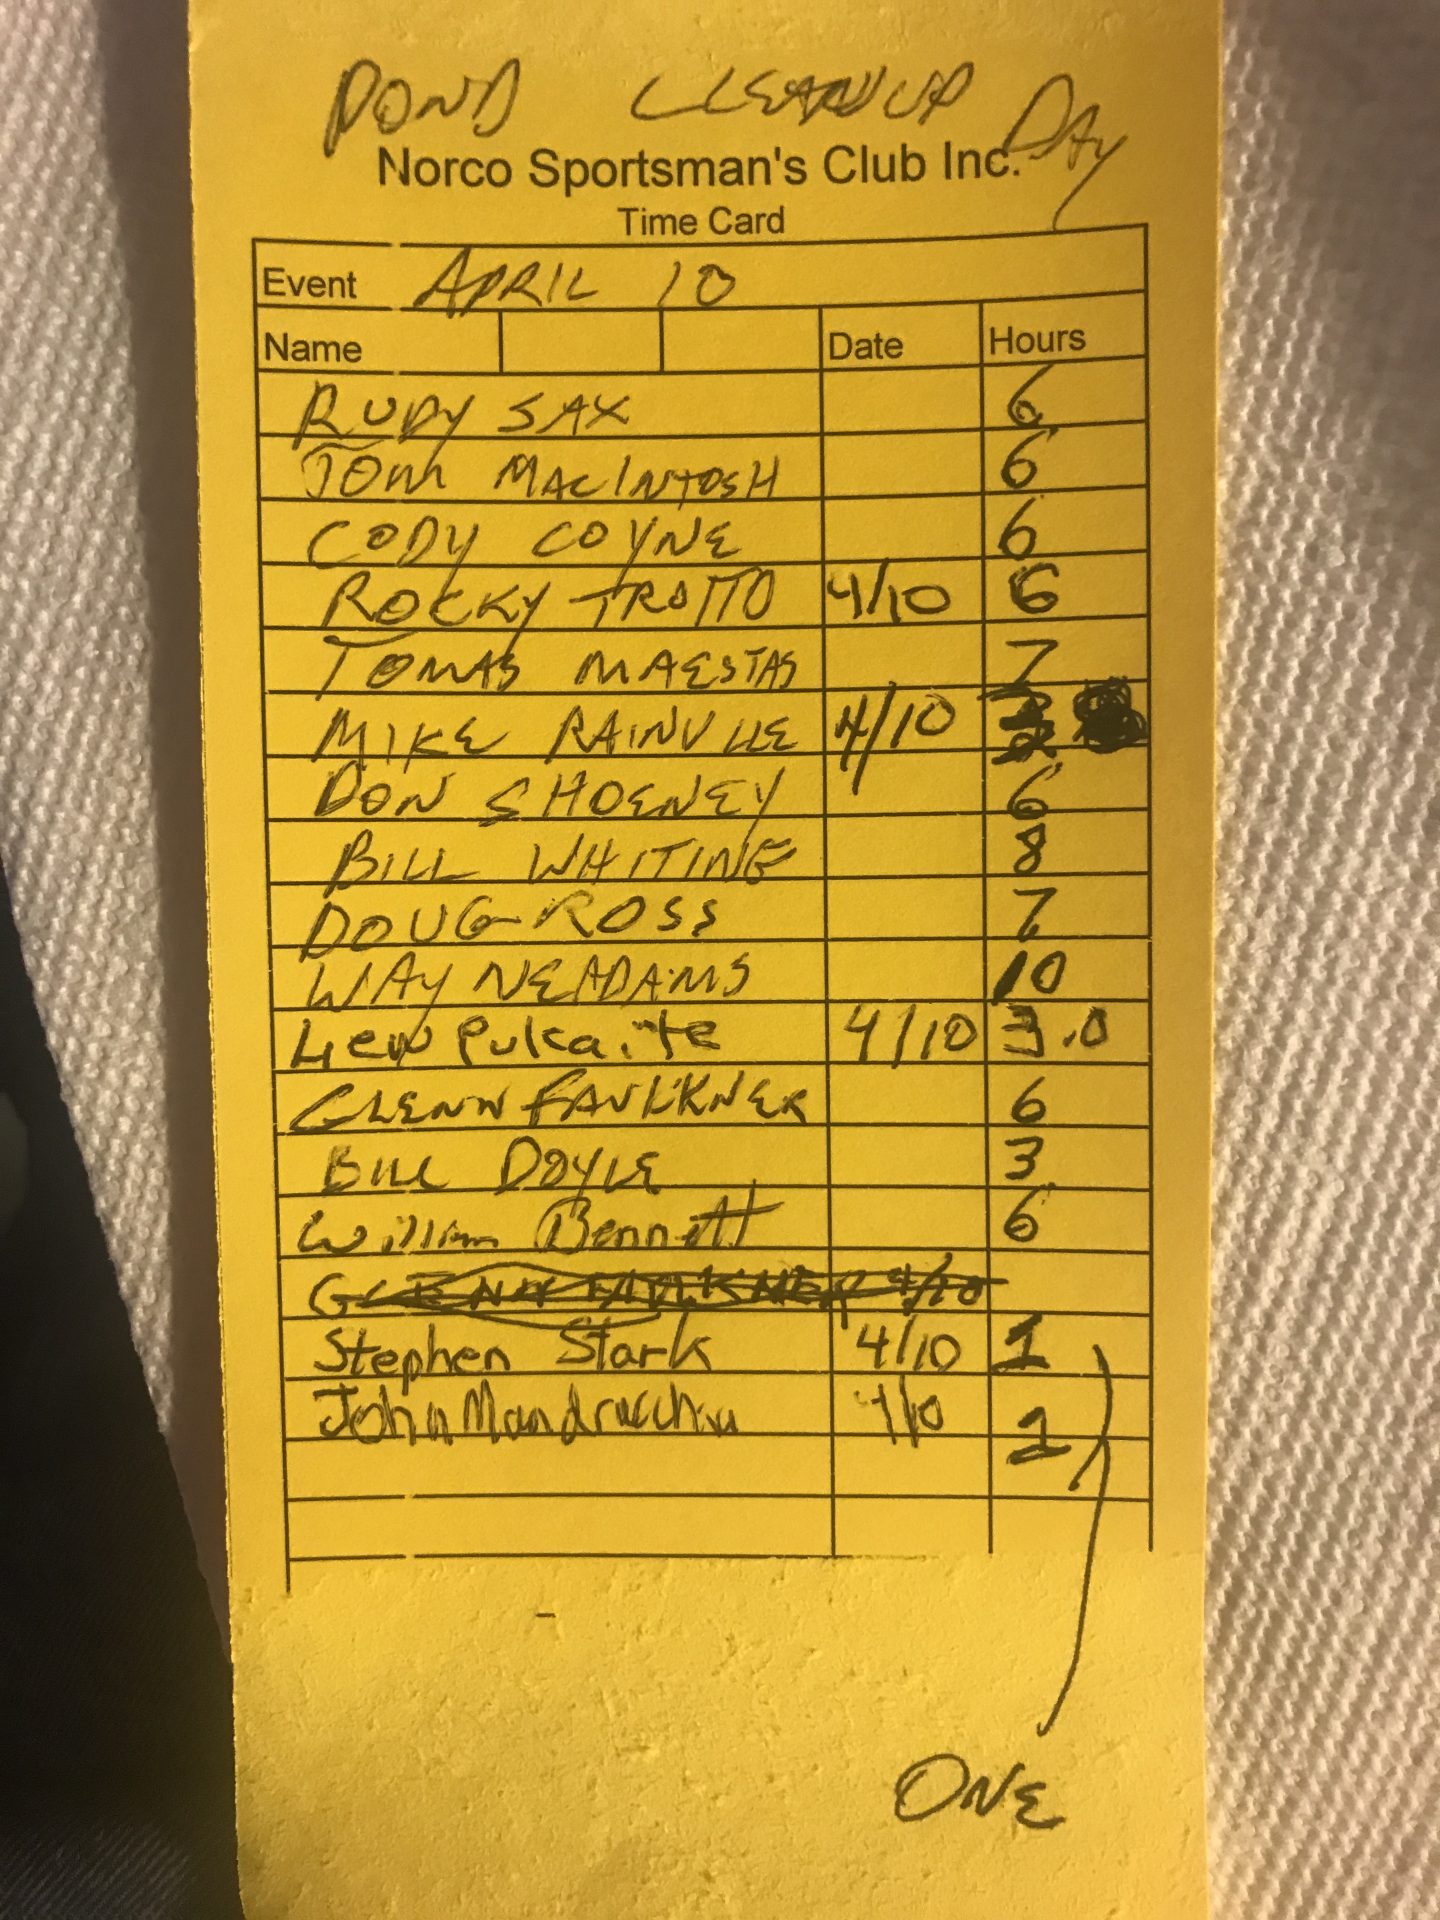 POND CLEANUP DAY
Norco Sportsman's Club Inc.
Time Card
Event APRIL 10
Name Date Hours
RUDY SAX 6
TOM MACINTOSH 6
CODY COYNE 6
ROCKY TROTTO 4/10 6
TOMAS MAESTAS 7
MIKE RAINVILLE 4/10
DON SHOENEY 6
BILL WHITING 8
DOUG ROSS 7
WAYNE ADAMS 10
Lew Pulkaite 4/10 3.0
GLENN FAULKNER 6
BILL DOYLE 3
William Bennett 6
GLENN FAULKNER 4/10
Stephen Stark 4/10 1
John 4/10 1
ONE